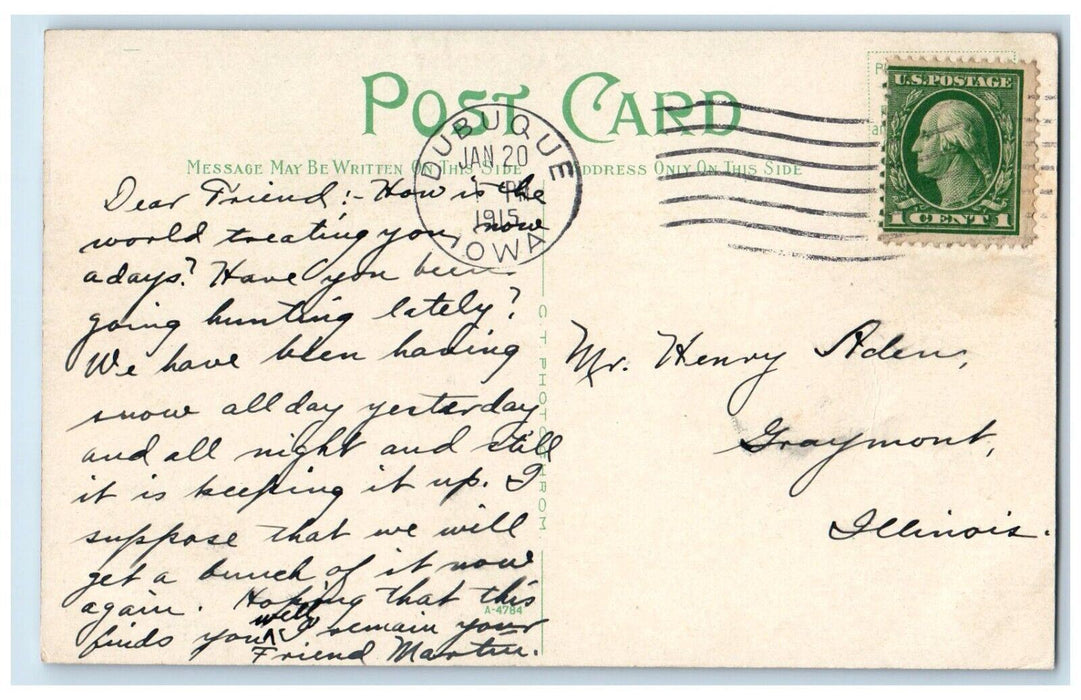 POST CARD
MESSAGE MAY BE WRITTEN ON THIS SIDE
ADDRESS ONLY ON THIS SIDE
U.S. POSTAGE
1 CENT 1
DUBUQUE
JAN 20
PM
1915
IOWA
Dear Friend:- How is the
world treating you, now
adays? Have you been
going hunting lately?
We have been having
snow all day yesterday
and all night and still
it is keeping it up. I
suppose that we will
get a bunch of it now
again. Hoping that this
finds you well I remain your
Friend Martin.
Mr. Henry Aden,
Graymont,
Illinois.
C. T. PHOTOCHROM
A-4784